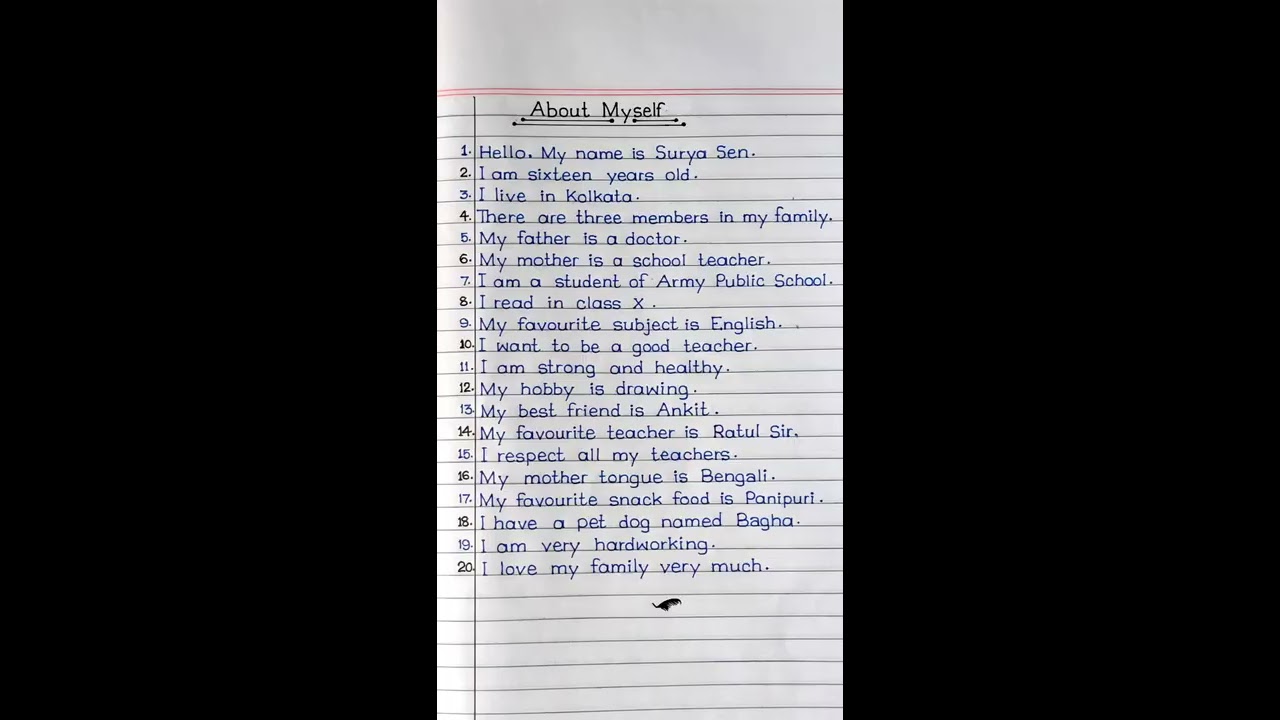 About Myself
1. Hello. My name is Surya Sen.
2. I am sixteen years old.
3. I live in Kolkata.
4. There are three members in my family.
5. My father is a doctor.
6. My mother is a school teacher.
7. I am a student of Army Public School.
8. I read in class X.
9. My favourite subject is English.
10. I want to be a good teacher.
11. I am strong and healthy.
12. My hobby is drawing.
13. My best friend is Ankit.
14. My favourite teacher is Ratul Sir.
15. I respect all my teachers.
16. My mother tongue is Bengali.
17. My favourite snack food is Panipuri.
18. I have a pet dog named Bagha.
19. I am very hardworking.
20. I love my family very much.